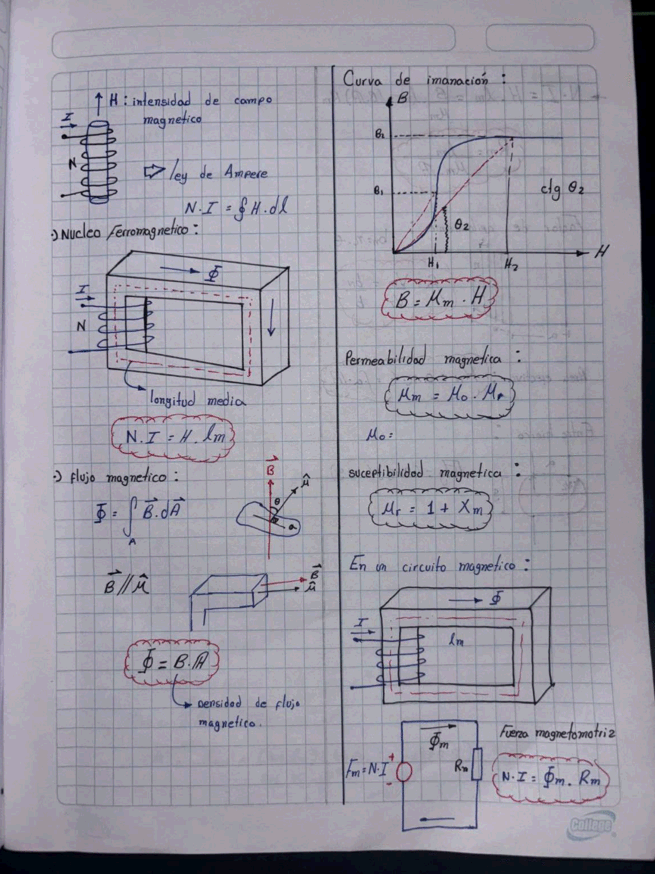 H: intensidad de campo
magnetico
I
N
ley de Ampere
N·I = ∮ H·dl
·) Nucleo Ferromagnetico:
Φ
I
N
longitud media
N·I = H·lm
·) flujo magnetico:
Φ = ∫ B·dA
A
B
θ
μ
B // μ
B
μ
Φ = B·A
Densidad de flujo
magnetico.
Curva de imanación:
B
B2
B1
θ2
ctg θ2
H1
H2
H
B = μm · H
Permeabilidad magnetica:
μm = μo · μr
μo =
suceptibilidad magnetica:
μr = 1 + Xm
En un circuito magnetico:
Φ
I
lm
Φm
Fuerza magnetomotriz
Fm = N·I
+
-
Rm
N·I = Φm · Rm
College